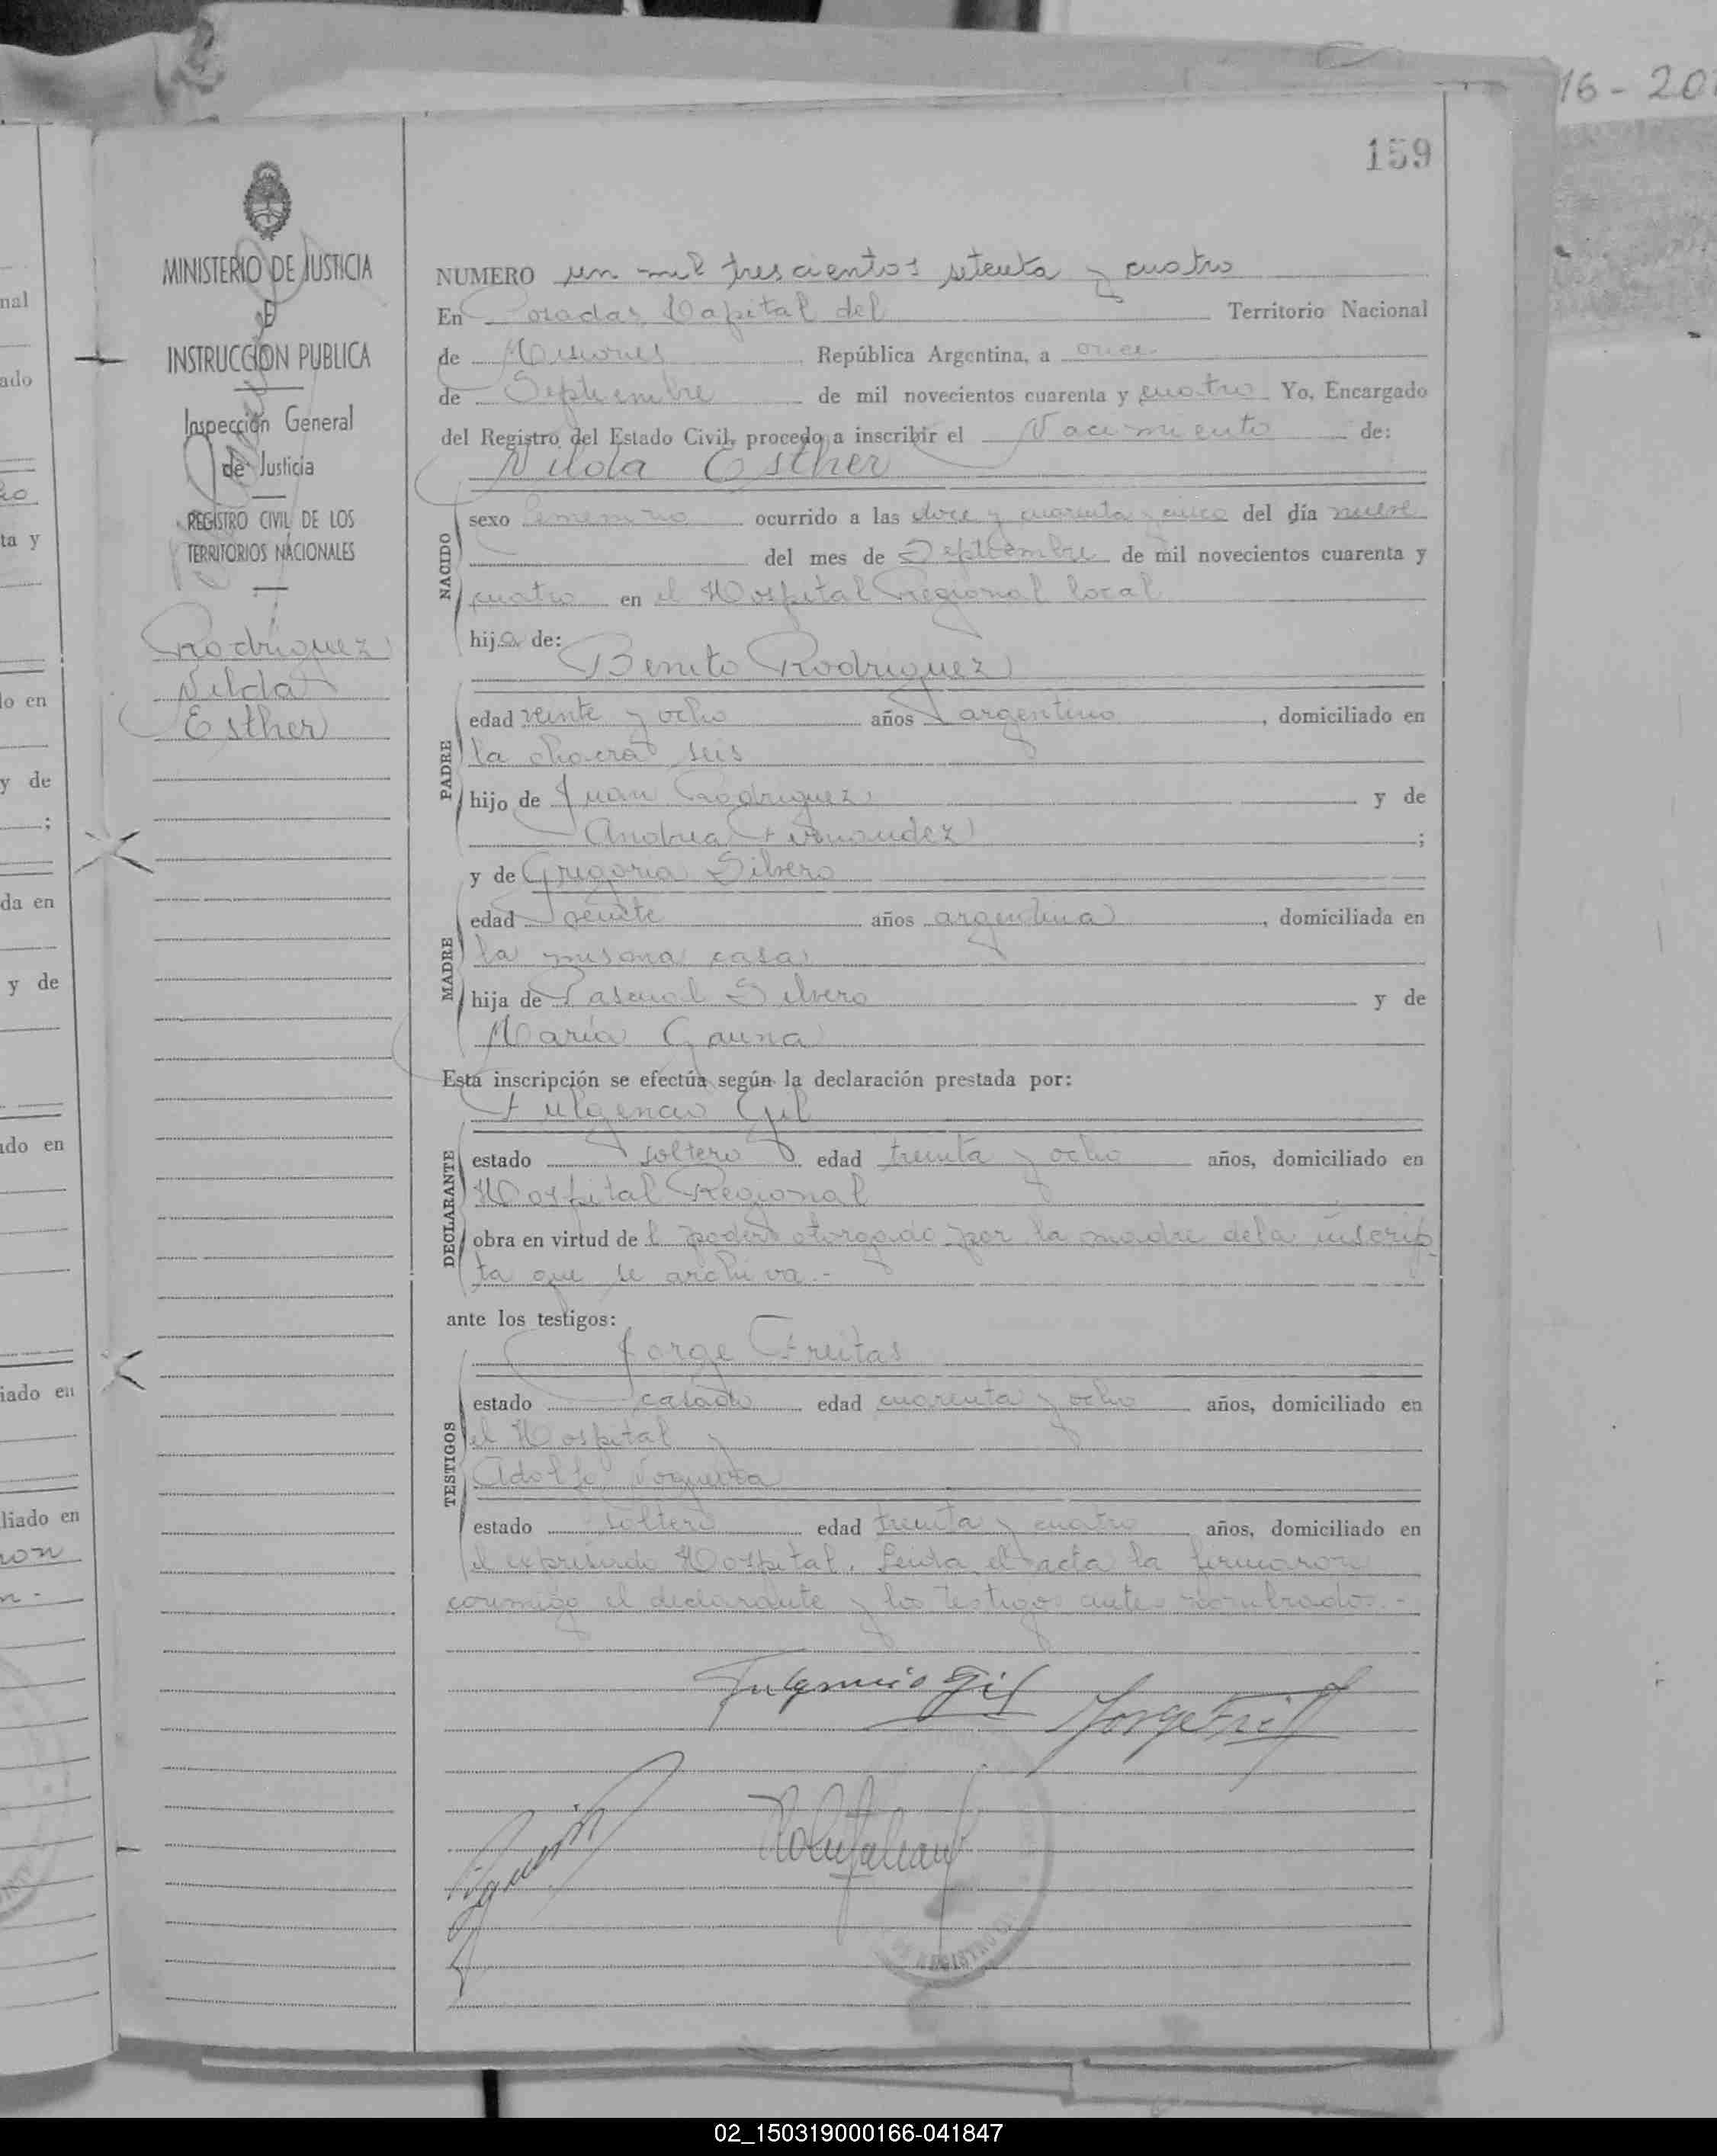 16-20
159
MINISTERIO DE JUSTICIA
E
INSTRUCCION PUBLICA
Inspección General
de Justicia
REGISTRO CIVIL DE LOS
TERRITORIOS NACIONALES
Rodriguez
Nilda
Esther
NUMERO un mil trescientos setenta y cuatro
En Posadas Capital del Territorio Nacional
de Misiones República Argentina, a once
de Septiembre de mil novecientos cuarenta y cuatro Yo, Encargado
del Registro del Estado Civil, procedo a inscribir el Nacimiento de:
Nilda Esther
NACIDO
sexo femenino ocurrido a las doce y cuarenta y cinco del día nueve
del mes de Septiembre de mil novecientos cuarenta y
cuatro en el Hospital Regional local
hija de:
Benito Rodriguez
PADRE
edad veinte y ocho años argentino, domiciliado en
la chacra seis
hijo de Juan Rodriguez y de
Andrea Fernandez;
y de Gregoria Silvero
MADRE
edad veinte años argentina, domiciliada en
la misma casa
hija de Pascual Silvero y de
María Gauna
Esta inscripción se efectúa según la declaración prestada por:
Fulgencio Gil
DECLARANTE
estado soltero edad treinta y ocho años, domiciliado en
Hospital Regional
obra en virtud del poder otorgado por la madre de la inscrip
ta que se archiva.-
ante los testigos:
Jorge Freitas
TESTIGOS
estado casado edad cuarenta y ocho años, domiciliado en
el Hospital y
Adolfo
estado soltero edad treinta y cuatro años, domiciliado en
el expresado Hospital. Leida el acta la firmaron
conmigo el declarante y los testigos antes nombrados.-
Fulgencio Gil
Jorge
02_150319000166-041847